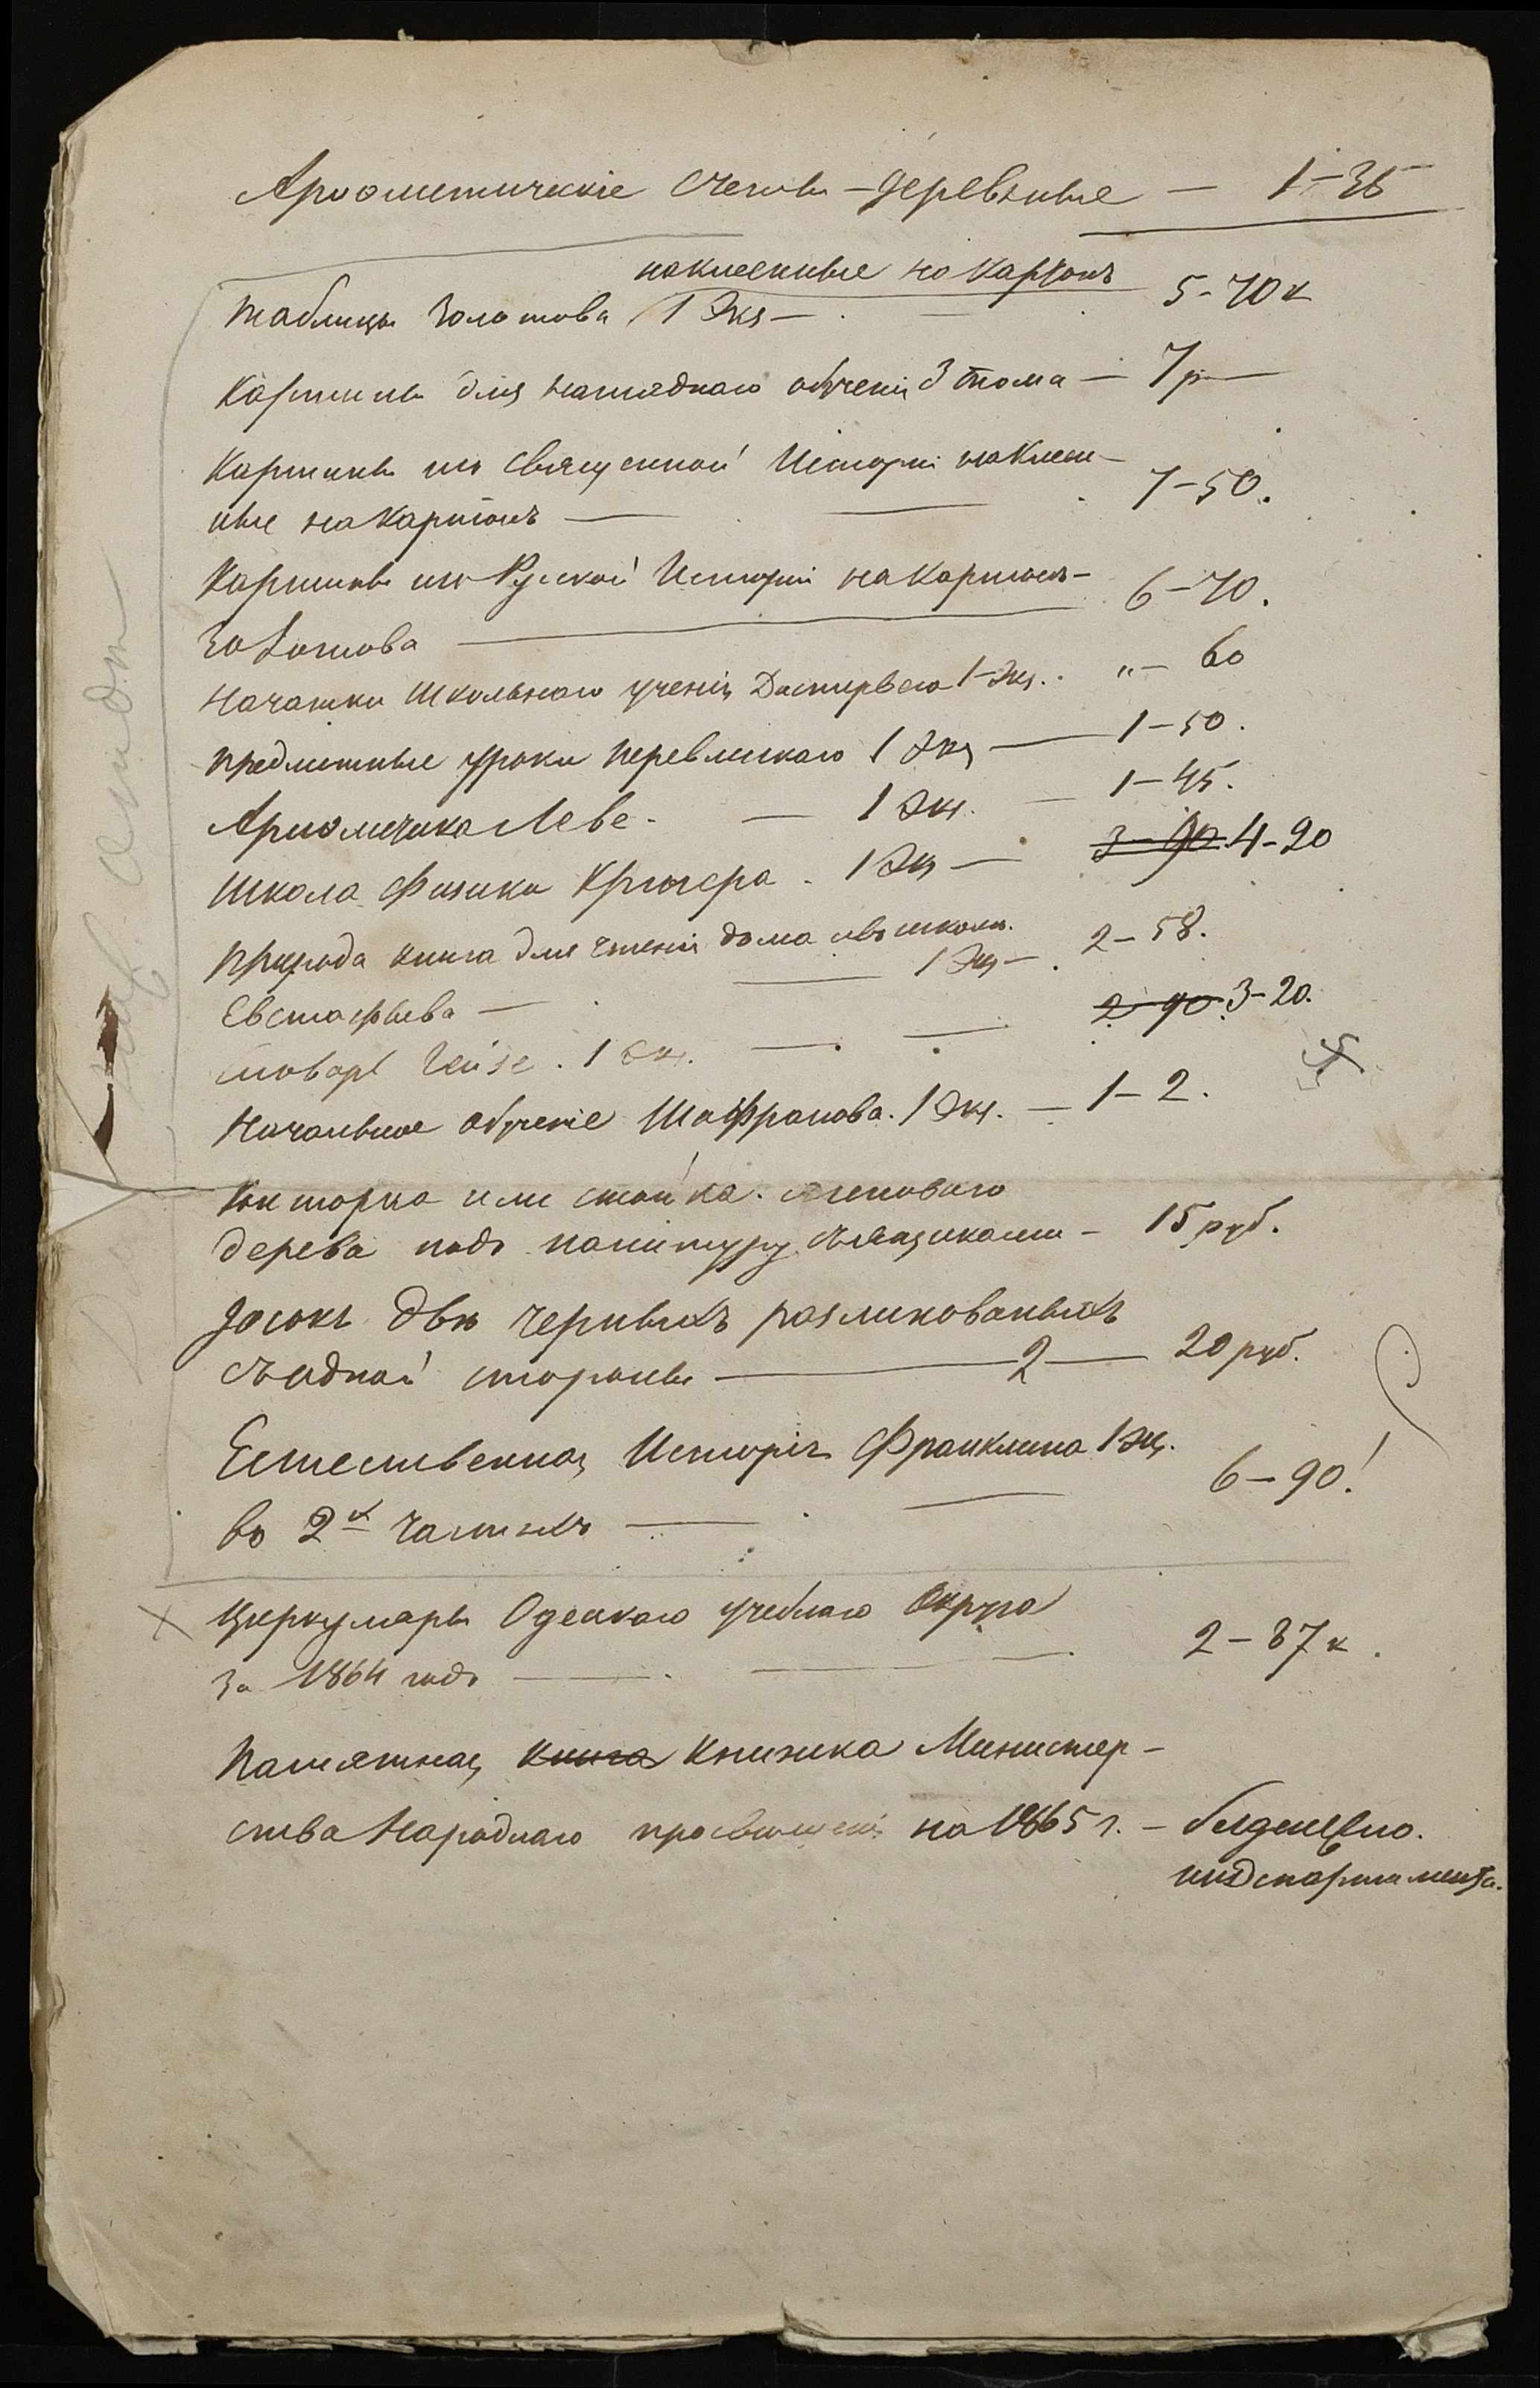 Ариѳметическіе счеты – деревяные — 1–35
наклеенные на картонъ
Таблицы Золотова 1 Экз — 5–70 к
Картины для нагляднаго обученія 3 тома — 7 р —
Картины изъ Священной Исторіи наклеен-
ные на картонъ — 7–50.
Картины изъ Руской Исторіи на картонѣ –
Золотова — 6–70.
Начатки Школьнаго ученія 1–Экз. . „– 60
Предметные уроки Перевлескаго 1 Экз — 1–50.
Ариѳметика Леве – — 1 Экз. — 1–45.
Школа физики Крюгера – 1 Экз — 3–90 4–20
Природа книга для чтенія дома и въ школѣ.
Евстафьева — 1 Экз — 2–58.
словарь Гейзе . 1 Эк. — 2–90 3–20.
Начальное обученіе Шафранова. 1 Экз. — 1–2.
Конторка или стойка
дерева подъ политуру съ ящиками – 15 руб.
Досокъ двѣ черныхъ разлинкованныхъ
съ одной стороны — 2 — 20 руб.
Естественная Исторія Франклина 1 экз.
въ 2х частяхъ — 6–90!
Циркуляры Одескаго учебнаго Округа
За 1864 годъ — 2–87 к.
Памятная Книга Книжка Министер-
ства Народнаго просвѣщенія на 1865 г. –